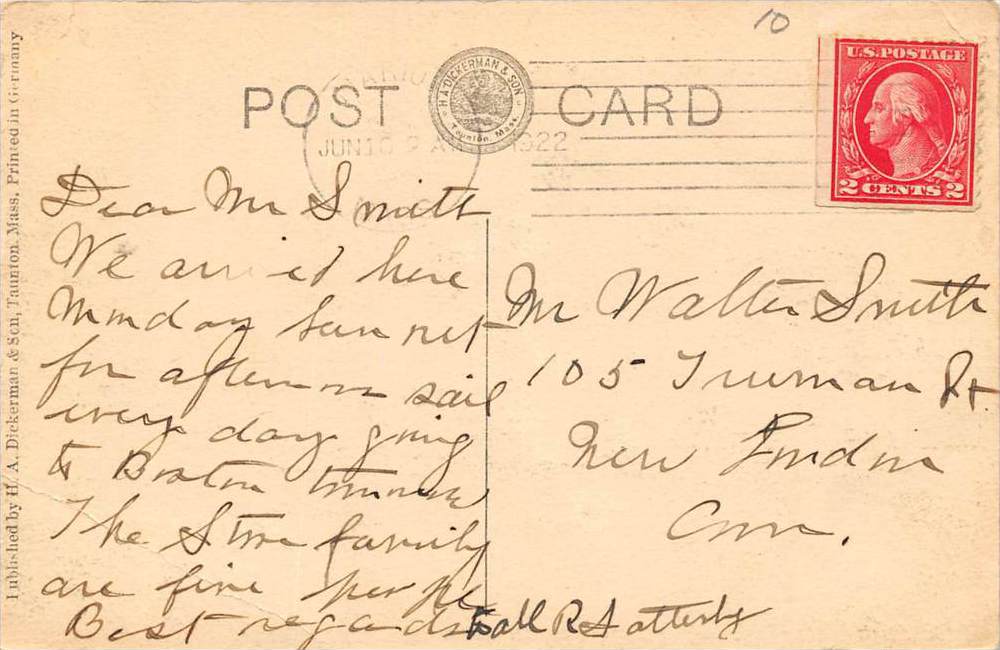 10
U.S. POSTAGE
2 CENTS 2
POST CARD
H. A. DICKERMAN & SON
Taunton, Mass.
JUN 10 9 A 1922
Published by H. A. Dickerman & Son, Taunton, Mass. Printed in Germany
Dear Mr Smith
We arrived here
Monday sun set
for afternoon sail
every day going
to Boston tomorrow
The Stone family
are fine people
Best regards to all R Satterly
Mr Walter Smith
105 Truman St.
New London
Conn.